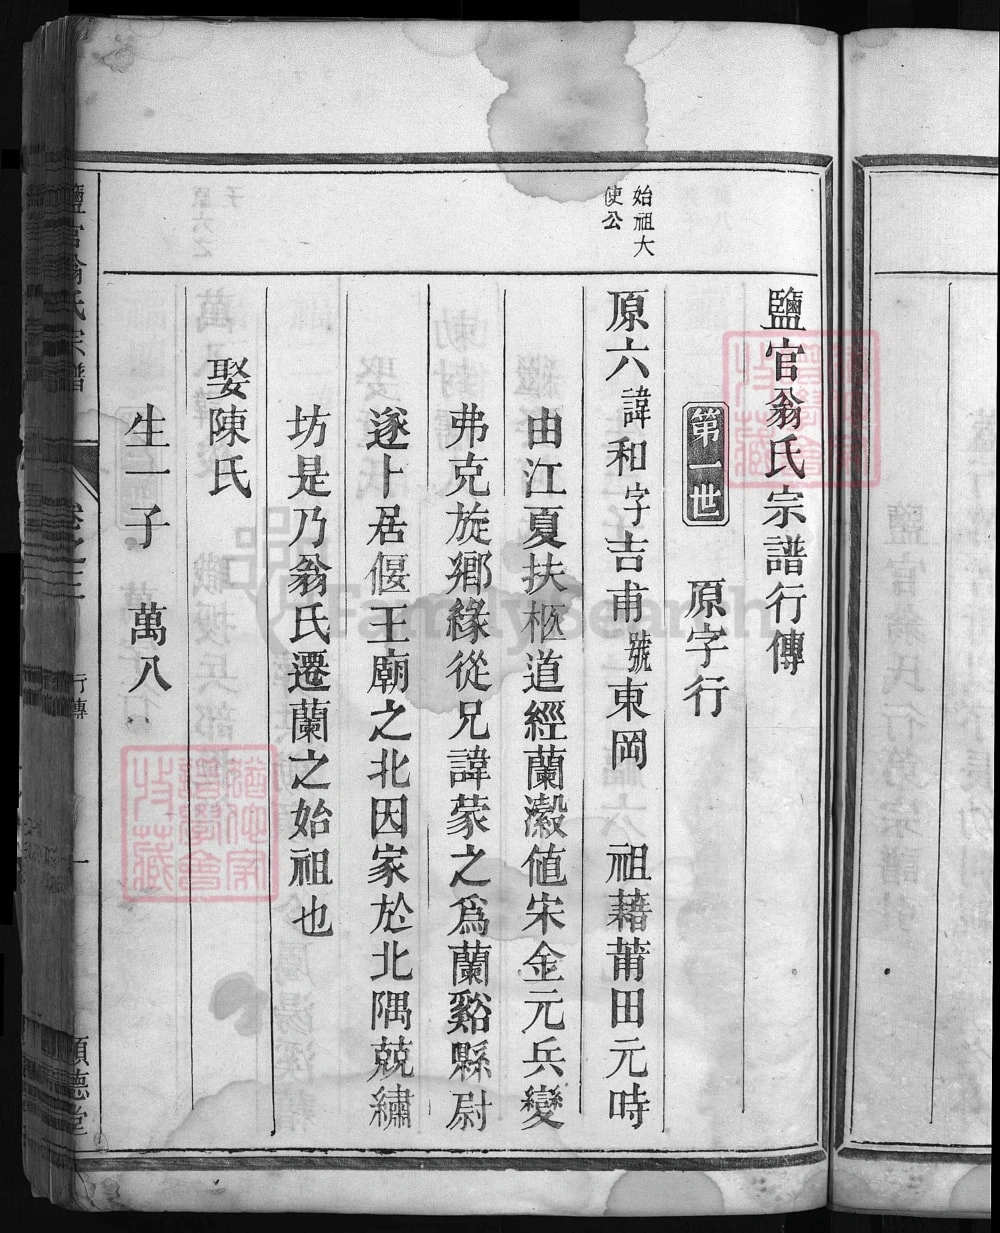 鹽官翁氏宗譜行傳
第一世　原字行
始祖大
使公
原六諱和字吉甫號東岡　祖藉莆田元時
由江夏扶柩道經蘭瀫値宋金元兵變
弗克旋鄕緣從兄諱蒙之爲蘭谿縣尉
遂卜居偃王廟之北因家於北隅兢繡
坊是乃翁氏遷蘭之始祖也
娶陳氏
生一子　萬八
鹽官翁氏宗譜　卷之三　行傳　一　順德堂
FamilySearch